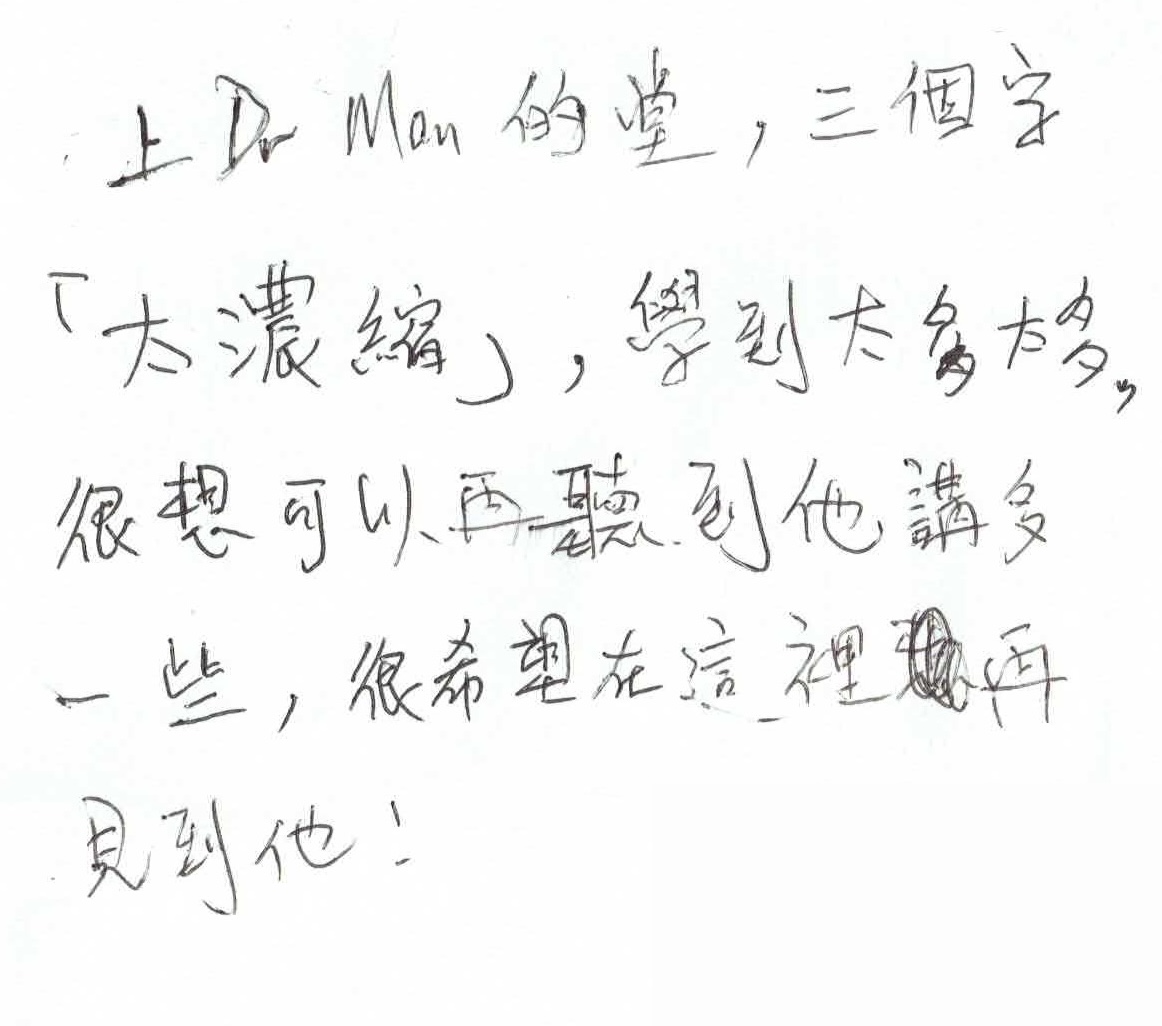 上 Dr Man 的堂，三個字
「太濃縮」，學到太多太多。
很想可以再聽到他講多
一些，很希望在這裡再
見到他！